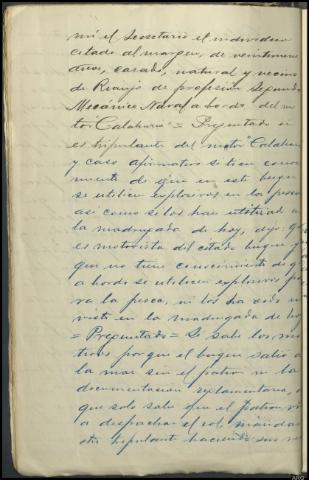 mi el Secretario el individuo
citado al margen, de veintinueve
años, casado, natural y vecino
de Rianjo de profesión Segundo
Mecánico Naval a bordo del mo
tor Calabuia = Preguntado si
es tripulante del motor "Calabu
y caso afirmativo si tiene conoci
miento de que en este buque
se utilicen explosivos en la pesca
así como si los han utilizado a
la madrugada de hoy, dijo: q
es motorista del citado buque y
que no tiene conocimiento de q
a bordo se utilicen explosivos pa
ra la pesca, ni los ha oido ni
visto en la madrugada de hoy
= Preguntado = Si sabe los mo
tivos porque el buque salió a
la mar sin el patrón ni la
documentación reglamentaria,
que solo sabe que el patrón
a despachar el rol,
otro tripulante haciendo sus